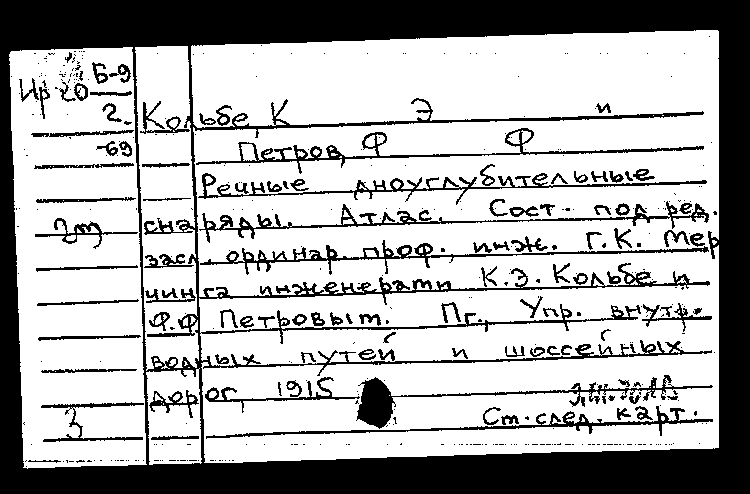 Б-9
2. Кольбе, К Э и
-69 Петров, Ф Ф
Речные дноуглубительные
снаряды. Атлас. Сост. под ред.
засл. ординар. проф., инж. Г.К. Мер
чинга инженерами К.Э. Кольбе и
Ф.Ф Петровым. Пг., Упр. внутр.
водных путей и шоссейных
дорог, 1915
3 Ст. след. карт.